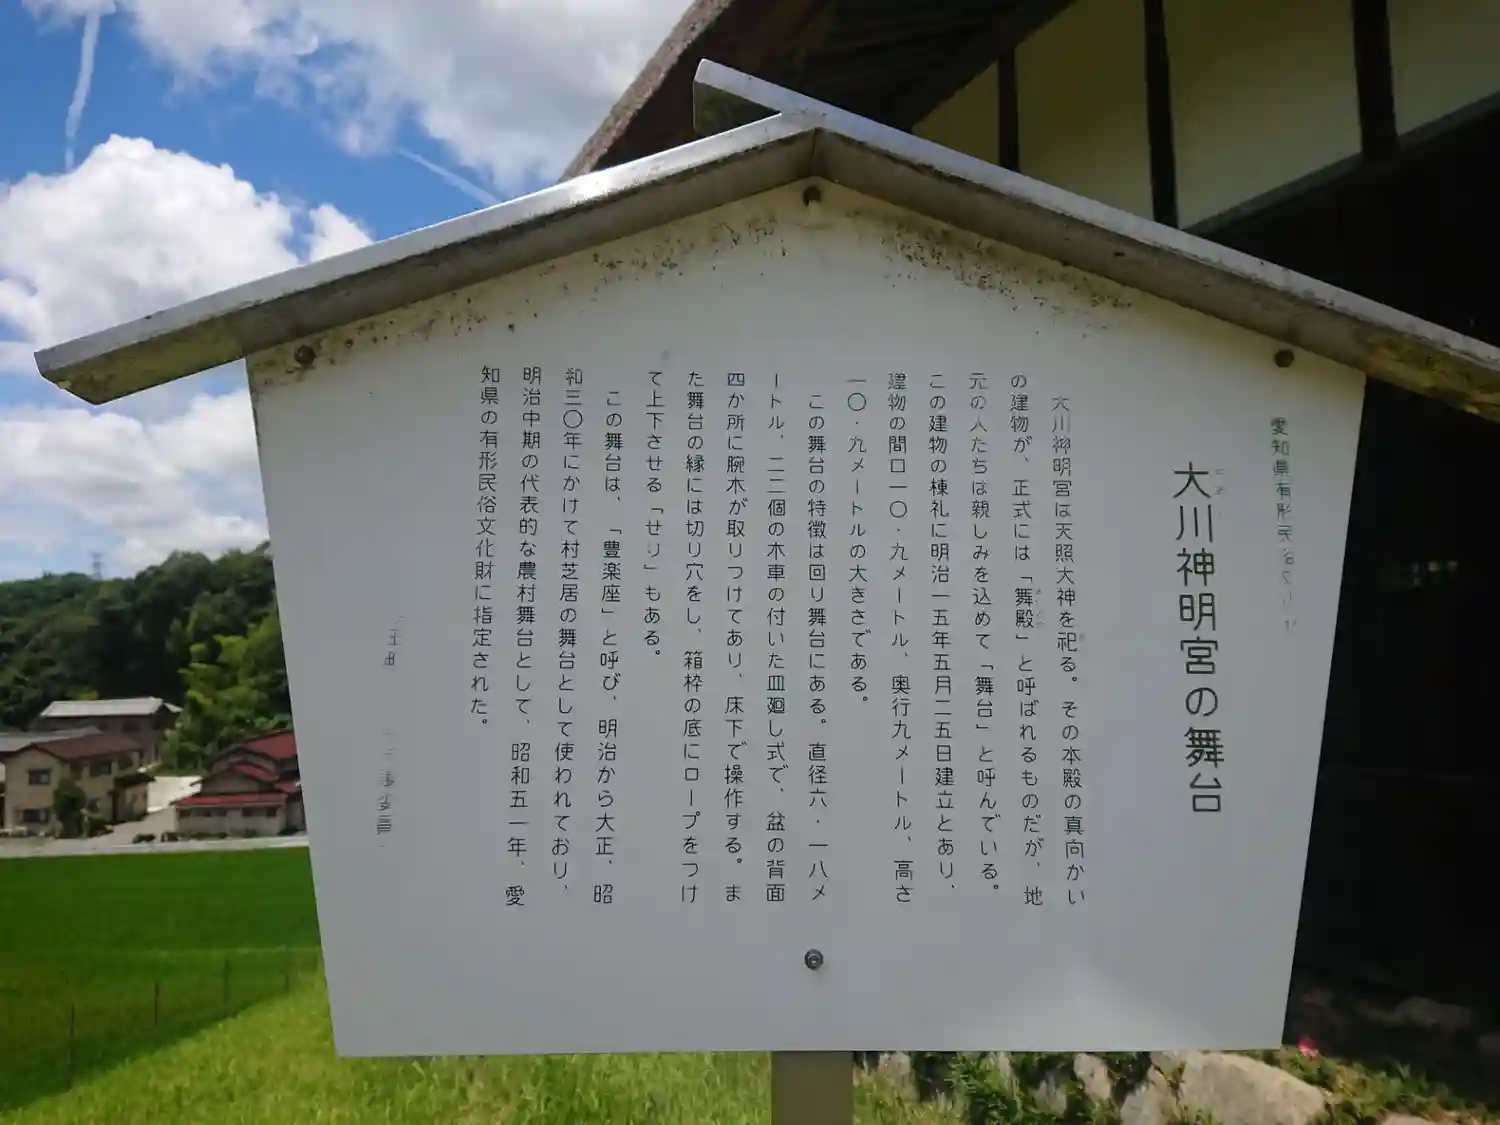 愛知県有形民俗文化財
大川神明宮の舞台
大川神明宮は天照大神を祀る。その本殿の真向かい
の建物が、正式には「舞殿」と呼ばれるものだが、地
元の人たちは親しみを込めて「舞台」と呼んでいる。
この建物の棟札に明治一五年五月二五日建立とあり、
建物の間口一〇・九メートル、奥行九メートル、高さ
一〇・九メートルの大きさである。
この舞台の特徴は回り舞台にある。直径六・一八メ
ートル、二二個の木車の付いた皿廻し式で、盆の背面
四か所に腕木が取りつけてあり、床下で操作する。ま
た舞台の縁には切り穴をし、箱枠の底にロープをつけ
て上下させる「せり」もある。
この舞台は、「豊楽座」と呼び、明治から大正、昭
和三〇年にかけて村芝居の舞台として使われており、
明治中期の代表的な農村舞台として、昭和五一年、愛
知県の有形民俗文化財に指定された。